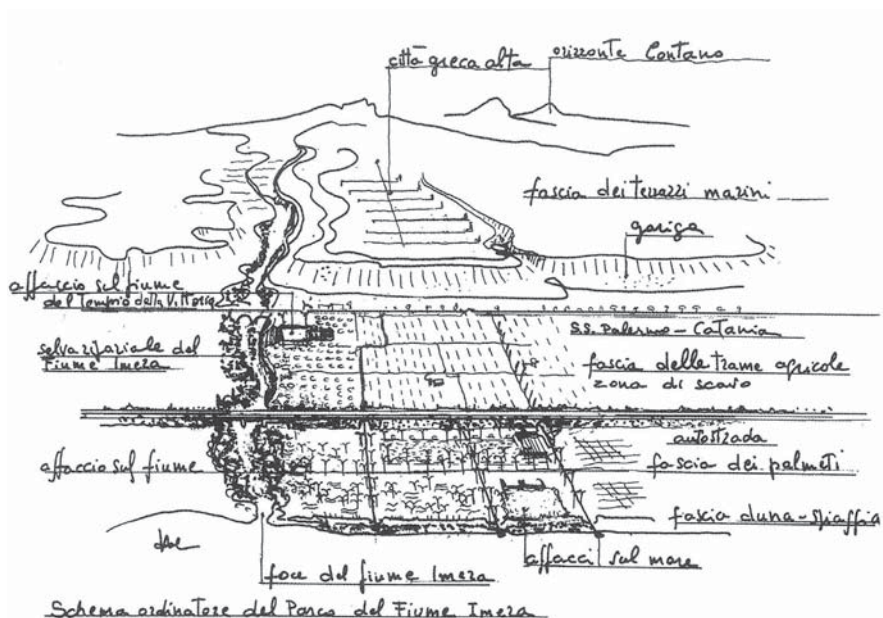 città greca alta
orizzonte lontano
fascia dei terrazzi marini
gariga
affaccio sul fiume
del Tempio della Vittoria
S.S. Palermo - Catania
selva ripariale del
Fiume Imera
fascia delle trame agricole
zona di scavo
autostrada
affaccio sul fiume
fascia dei palmeti
fascia duna-spiaggia
affacci sul mare
foce del fiume Imera
Schema ordinatore del Parco del Fiume Imera